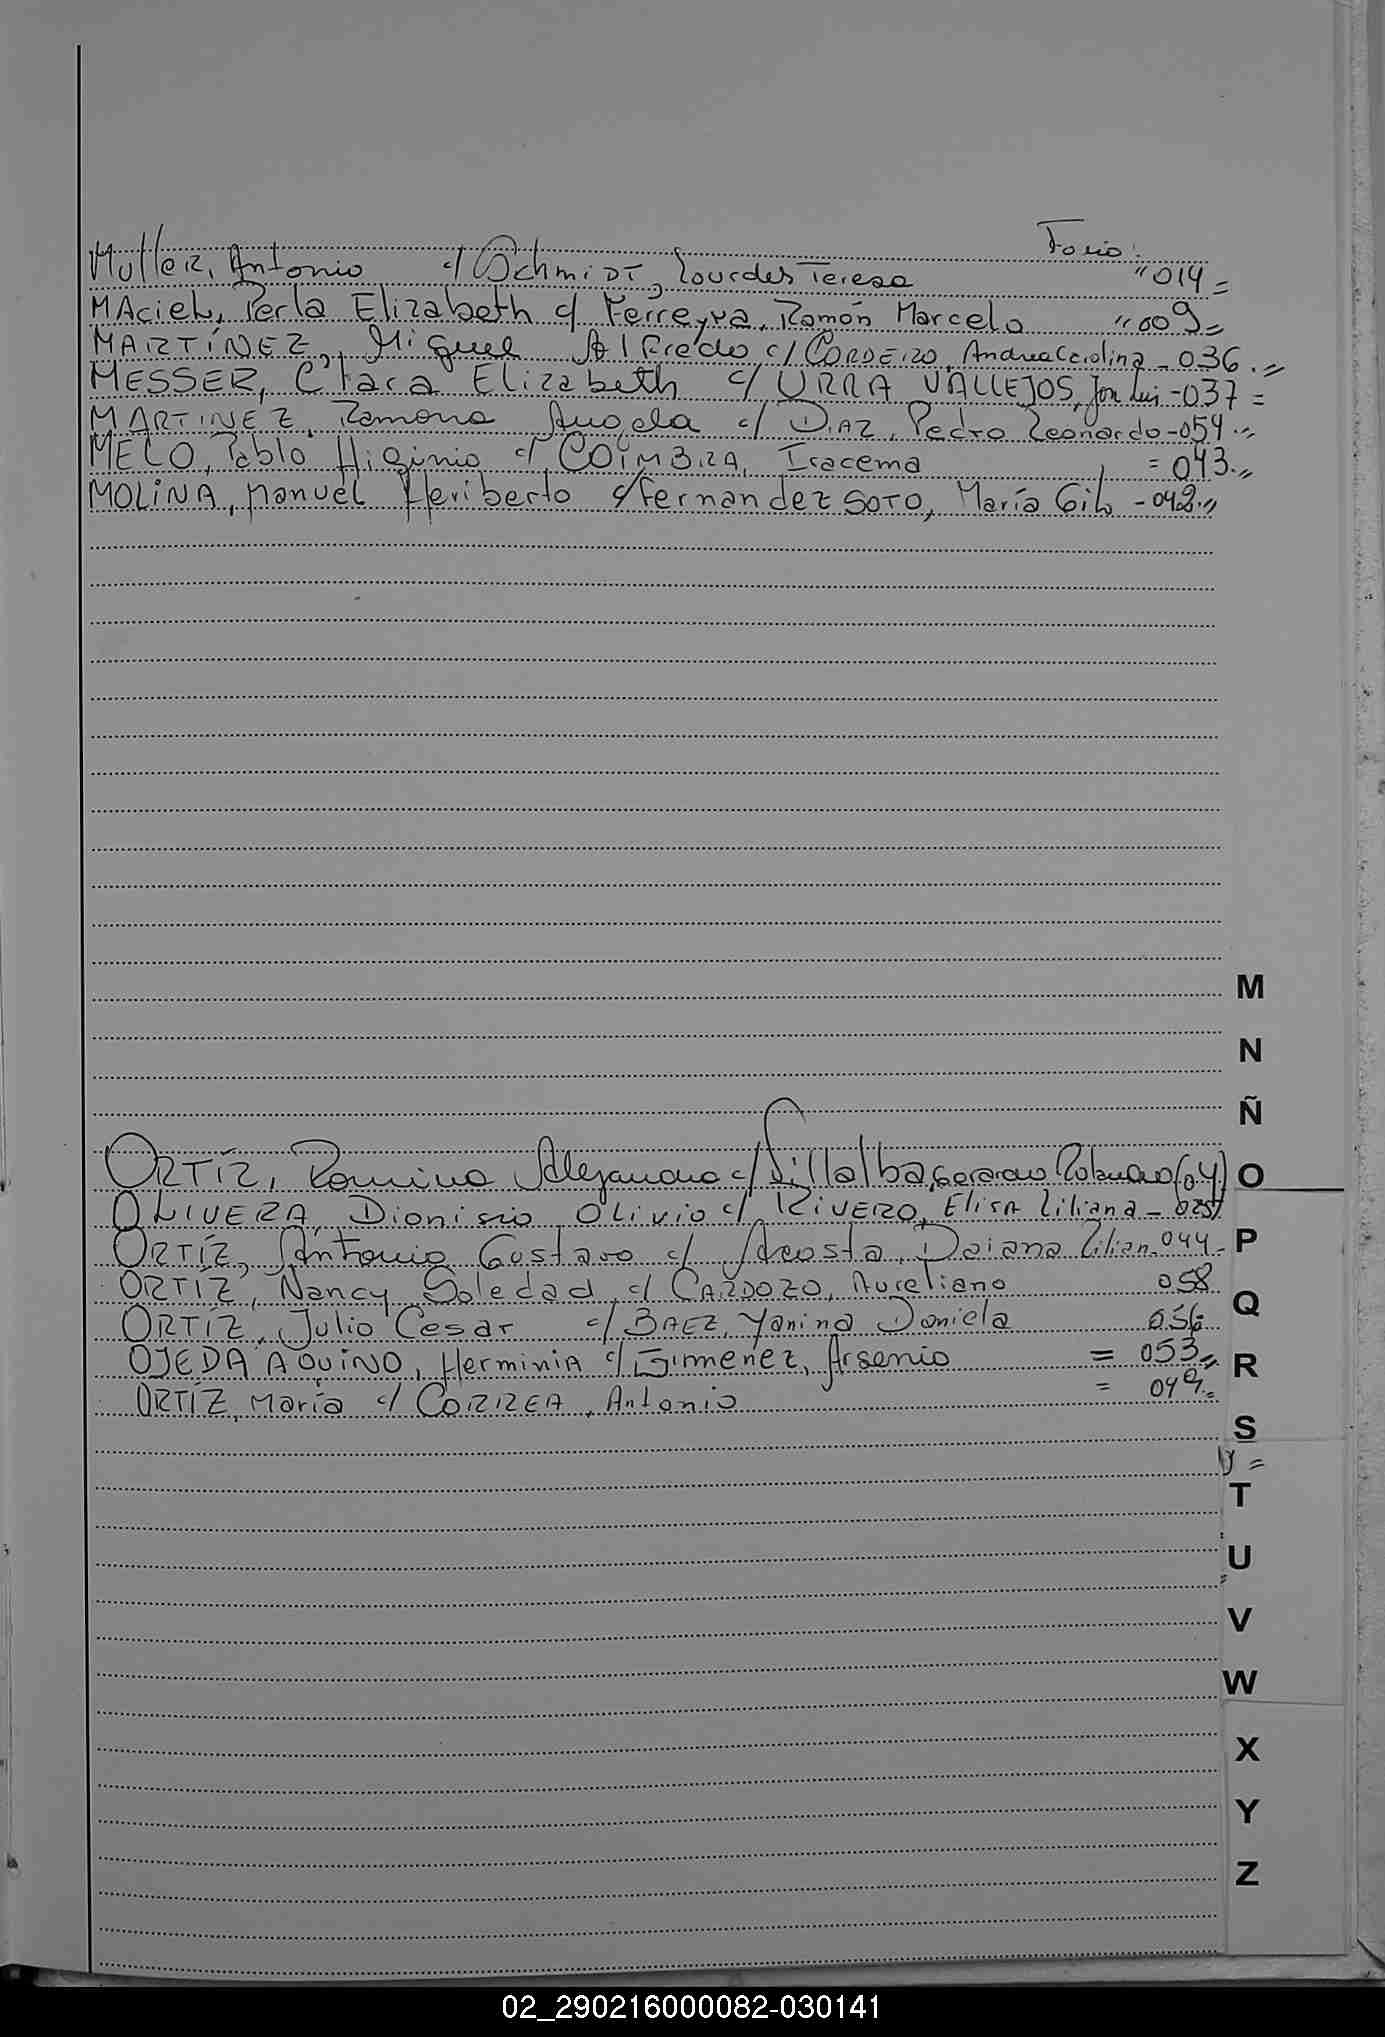 Folio:
Muller, Antonio c/ Schmidt, Lourdes Teresa "014=
MAciel, Perla Elizabeth c/ Ferreyra, Ramón Marcelo "009=
MARTÍNEZ, Miguel Alfredo c/ CORDEIRO, Andrea Carolina - 036.=
MESSER, Clara Elizabeth c/ URRA VALLEJOS, Jon Luis - 037 =
MARTINEZ, Ramona Angela c/ DIAZ, Pedro Leonardo - 054.=
MELO, Pablo Higinio c/ COÍMBRA, Iracema = 043.=
MOLINA, Manuel Heriberto c/ Fernandez SOTO, María Gil - 042.=
M
N
Ñ
ORTÍZ, Romina Alejandra c/ Villalba, Gerardo Rolando (04) O
OLIVERA, Dionisio Olivio c/ RIVERO, Elisa Liliana - 025
ORTÍZ, Antonio Gustavo c/ Acosta, Daiana Lilian - 044 - P
ORTÍZ, Nancy Soledad, c/ CARDOZO, Aureliano 058
ORTÍZ, Julio Cesar c/ BAEZ, Yanina Daniela 056 Q
OJEDA AQUINO, Herminia c/ Gimenez, Arsenio = 053= R
ORTÍZ, María c/ CORREA, Antonio = 049.=
S
T
U
V
W
X
Y
Z
02_290216000082-030141